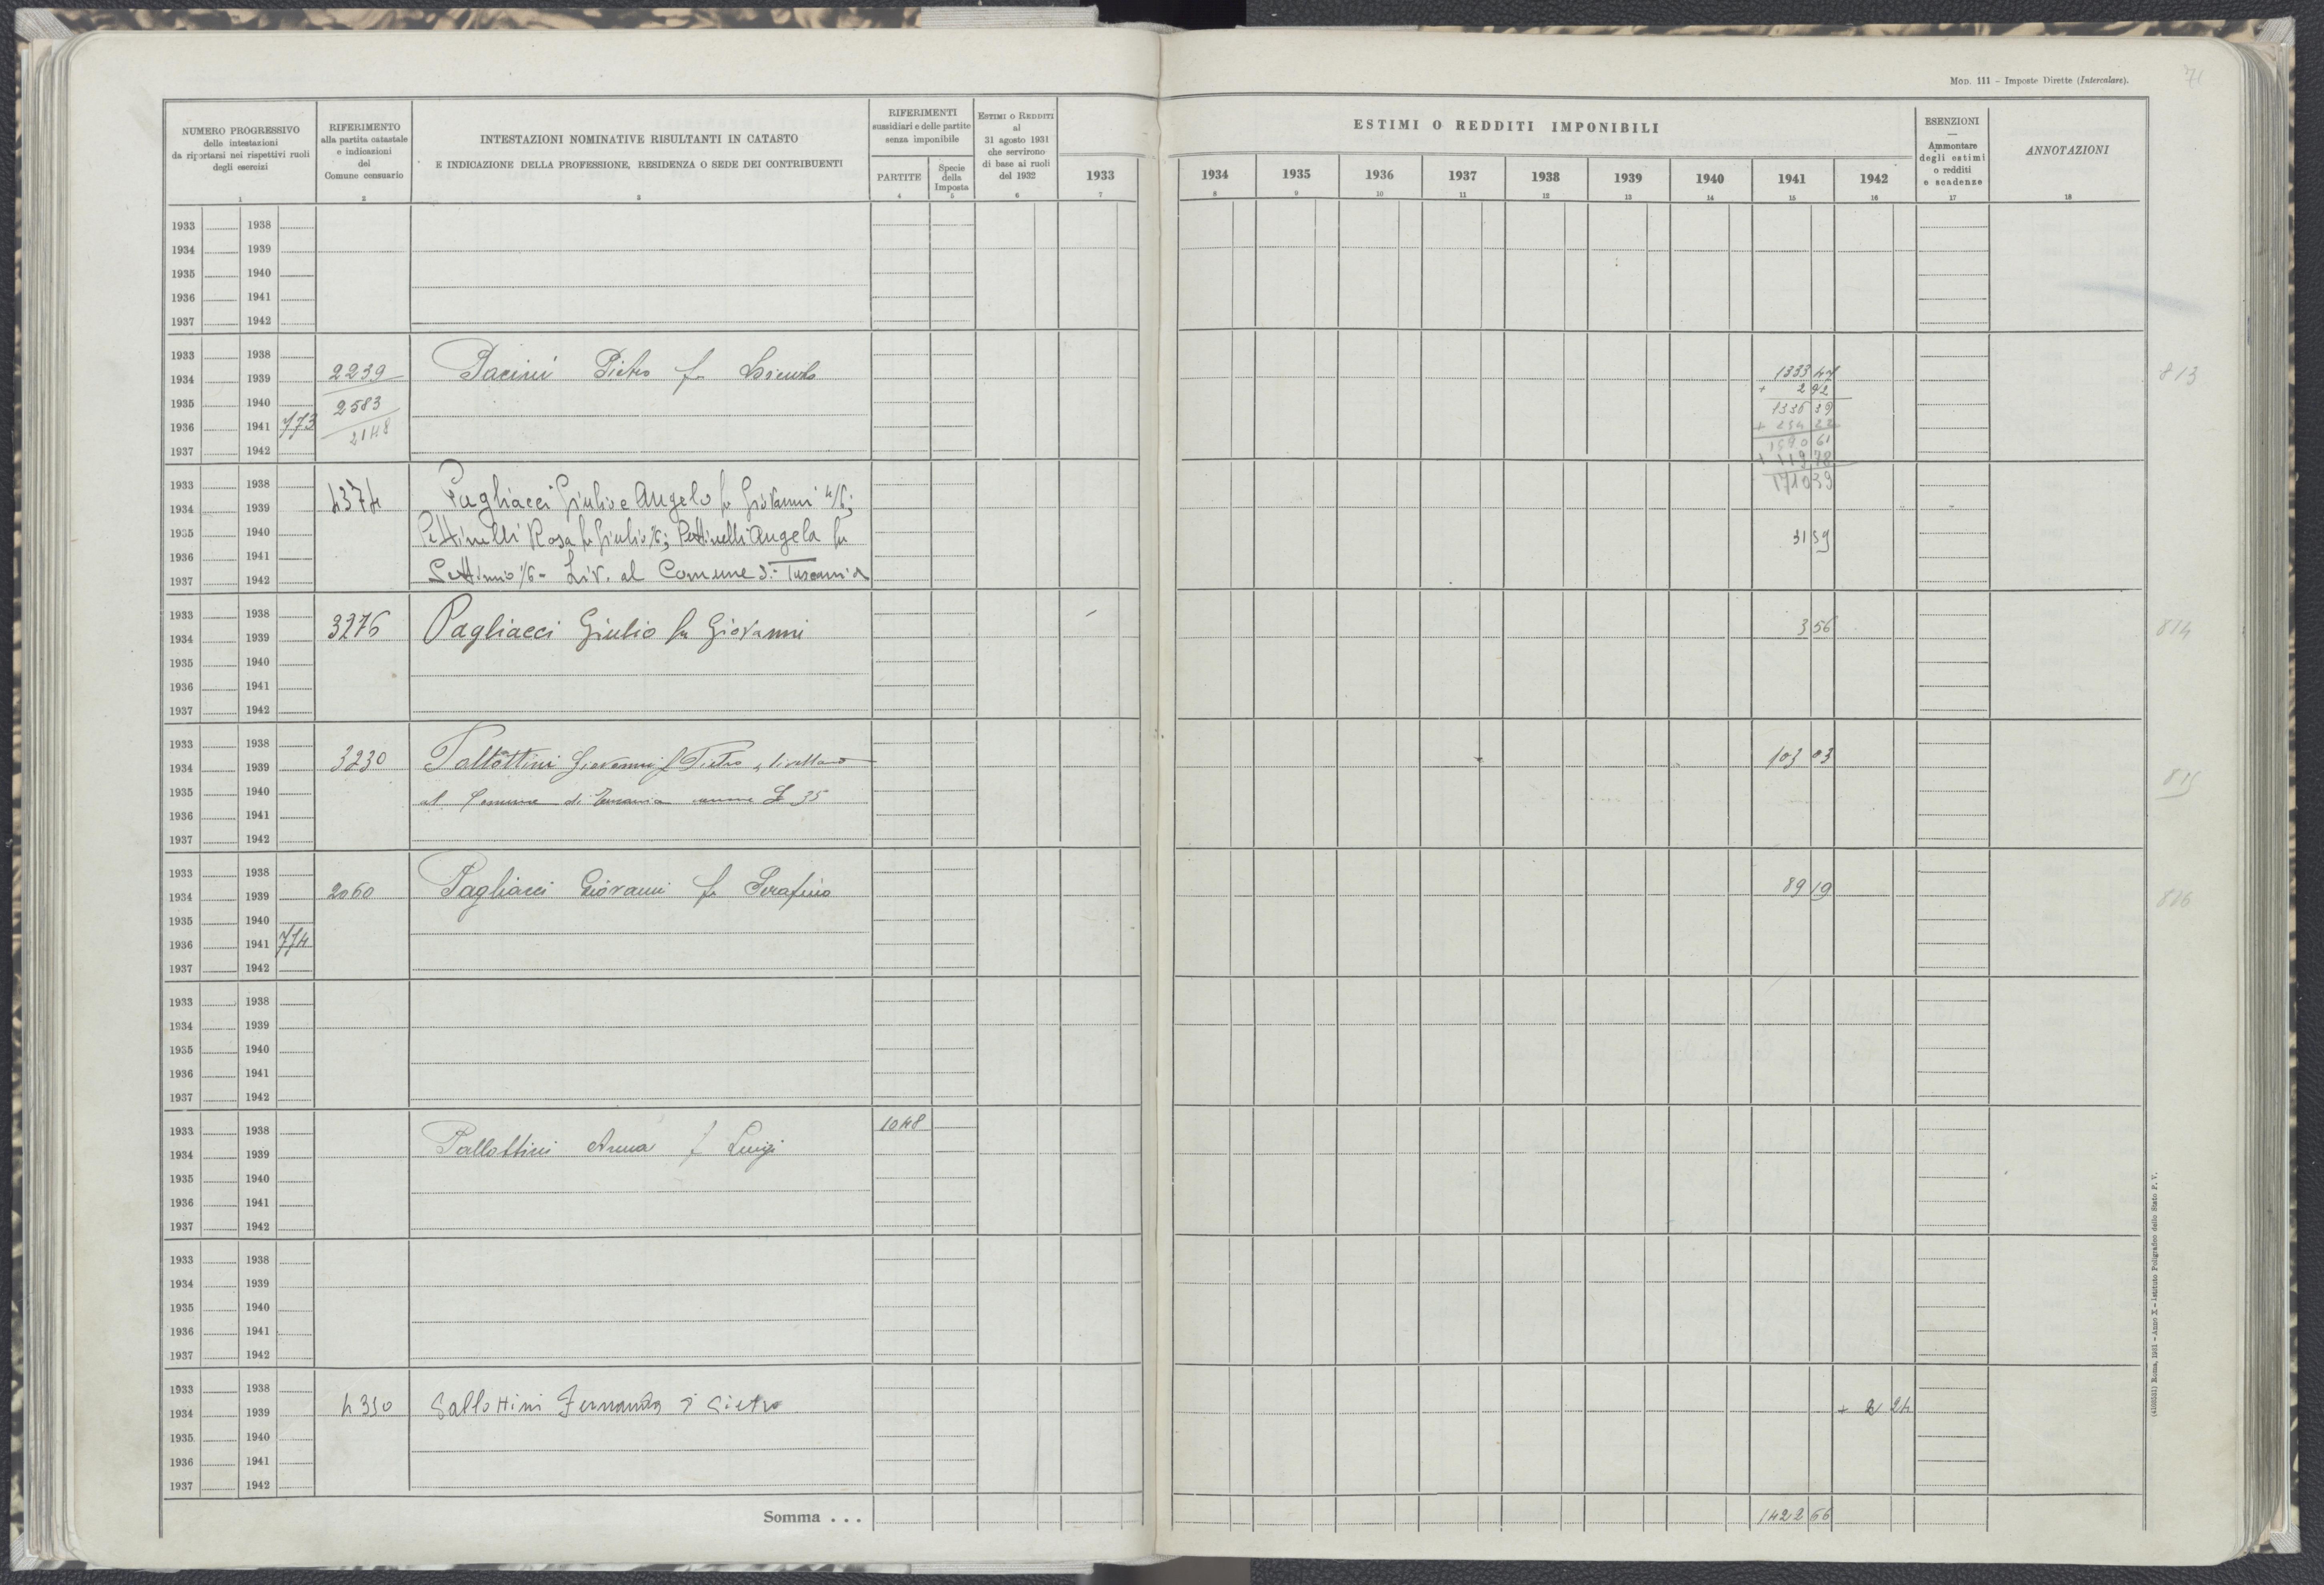 Mod. 111 - Imposte Dirette (Intercalare).
71
NUMERO PROGRESSIVO
delle intestazioni
da riportarsi nei rispettivi ruoli
degli esercizi
1
RIFERIMENTO
alla partita catastale
e indicazioni
del
Comune censuario
2
INTESTAZIONI NOMINATIVE RISULTANTI IN CATASTO
E INDICAZIONE DELLA PROFESSIONE, RESIDENZA O SEDE DEI CONTRIBUENTI
3
RIFERIMENTI
sussidiari e delle partite
senza imponibile
PARTITE
4
Specie
della
Imposta
5
ESTIMI O REDDITI
al
31 agosto 1931
che servirono
di base ai ruoli
del 1932
6
1933
7
ESTIMI O REDDITI IMPONIBILI
1934
8
1935
9
1936
10
1937
11
1938
12
1939
13
1940
14
1941
15
1942
16
ESENZIONI
—
Ammontare
degli estimi
o redditi
e scadenze
17
ANNOTAZIONI
18
1933 1938
1934 1939
1935 1940
1936 1941
1937 1942
1933 1938
1934 1939 2239 Pacini Pietro fu 1333 47 813
+ 2 92
1935 1940 2583 1336 39
1936 1941 773 2148 + 254 22
1937 1942 1590 61
+ 119 78
1710 39
1933 1938
1934 1939 4374 Pagliacci Giulio e Angelo fu Giovanni 4/6;
1935 1940 Pettinelli Rosa fu Giulio 1/6; Pettinelli Angela fu 31 59
1936 1941
1937 1942 Settimio 1/6 - Liv. al Comune di Tuscania
1933 1938
1934 1939 3276 Pagliacci Giulio fu Giovanni 3 56 814
1935 1940
1936 1941
1937 1942
1933 1938
1934 1939 3230 Pallottini Giovanni f Pietro, livellario 103 03 815
1935 1940 al Comune di Tuscania L 35
1936 1941
1937 1942
1933 1938
1934 1939 2060 Pagliacci Giovanni fu Serafino 89 19 816
1935 1940
1936 1941 774
1937 1942
1933 1938
1934 1939
1935 1940
1936 1941
1937 1942
1933 1938 1048
1934 1939 Pallottini Anna f Luigi
1935 1940
1936 1941
1937 1942
1933 1938
1934 1939
1935 1940
1936 1941
1937 1942
1933 1938
1934 1939 4350 Pallottini Fernanda di Pietro + 2 24
1935 1940
1936 1941
1937 1942
Somma . . . 1422 66
(410351) Roma, 1931 - Anno X - Istituto Poligrafico dello Stato P. V.